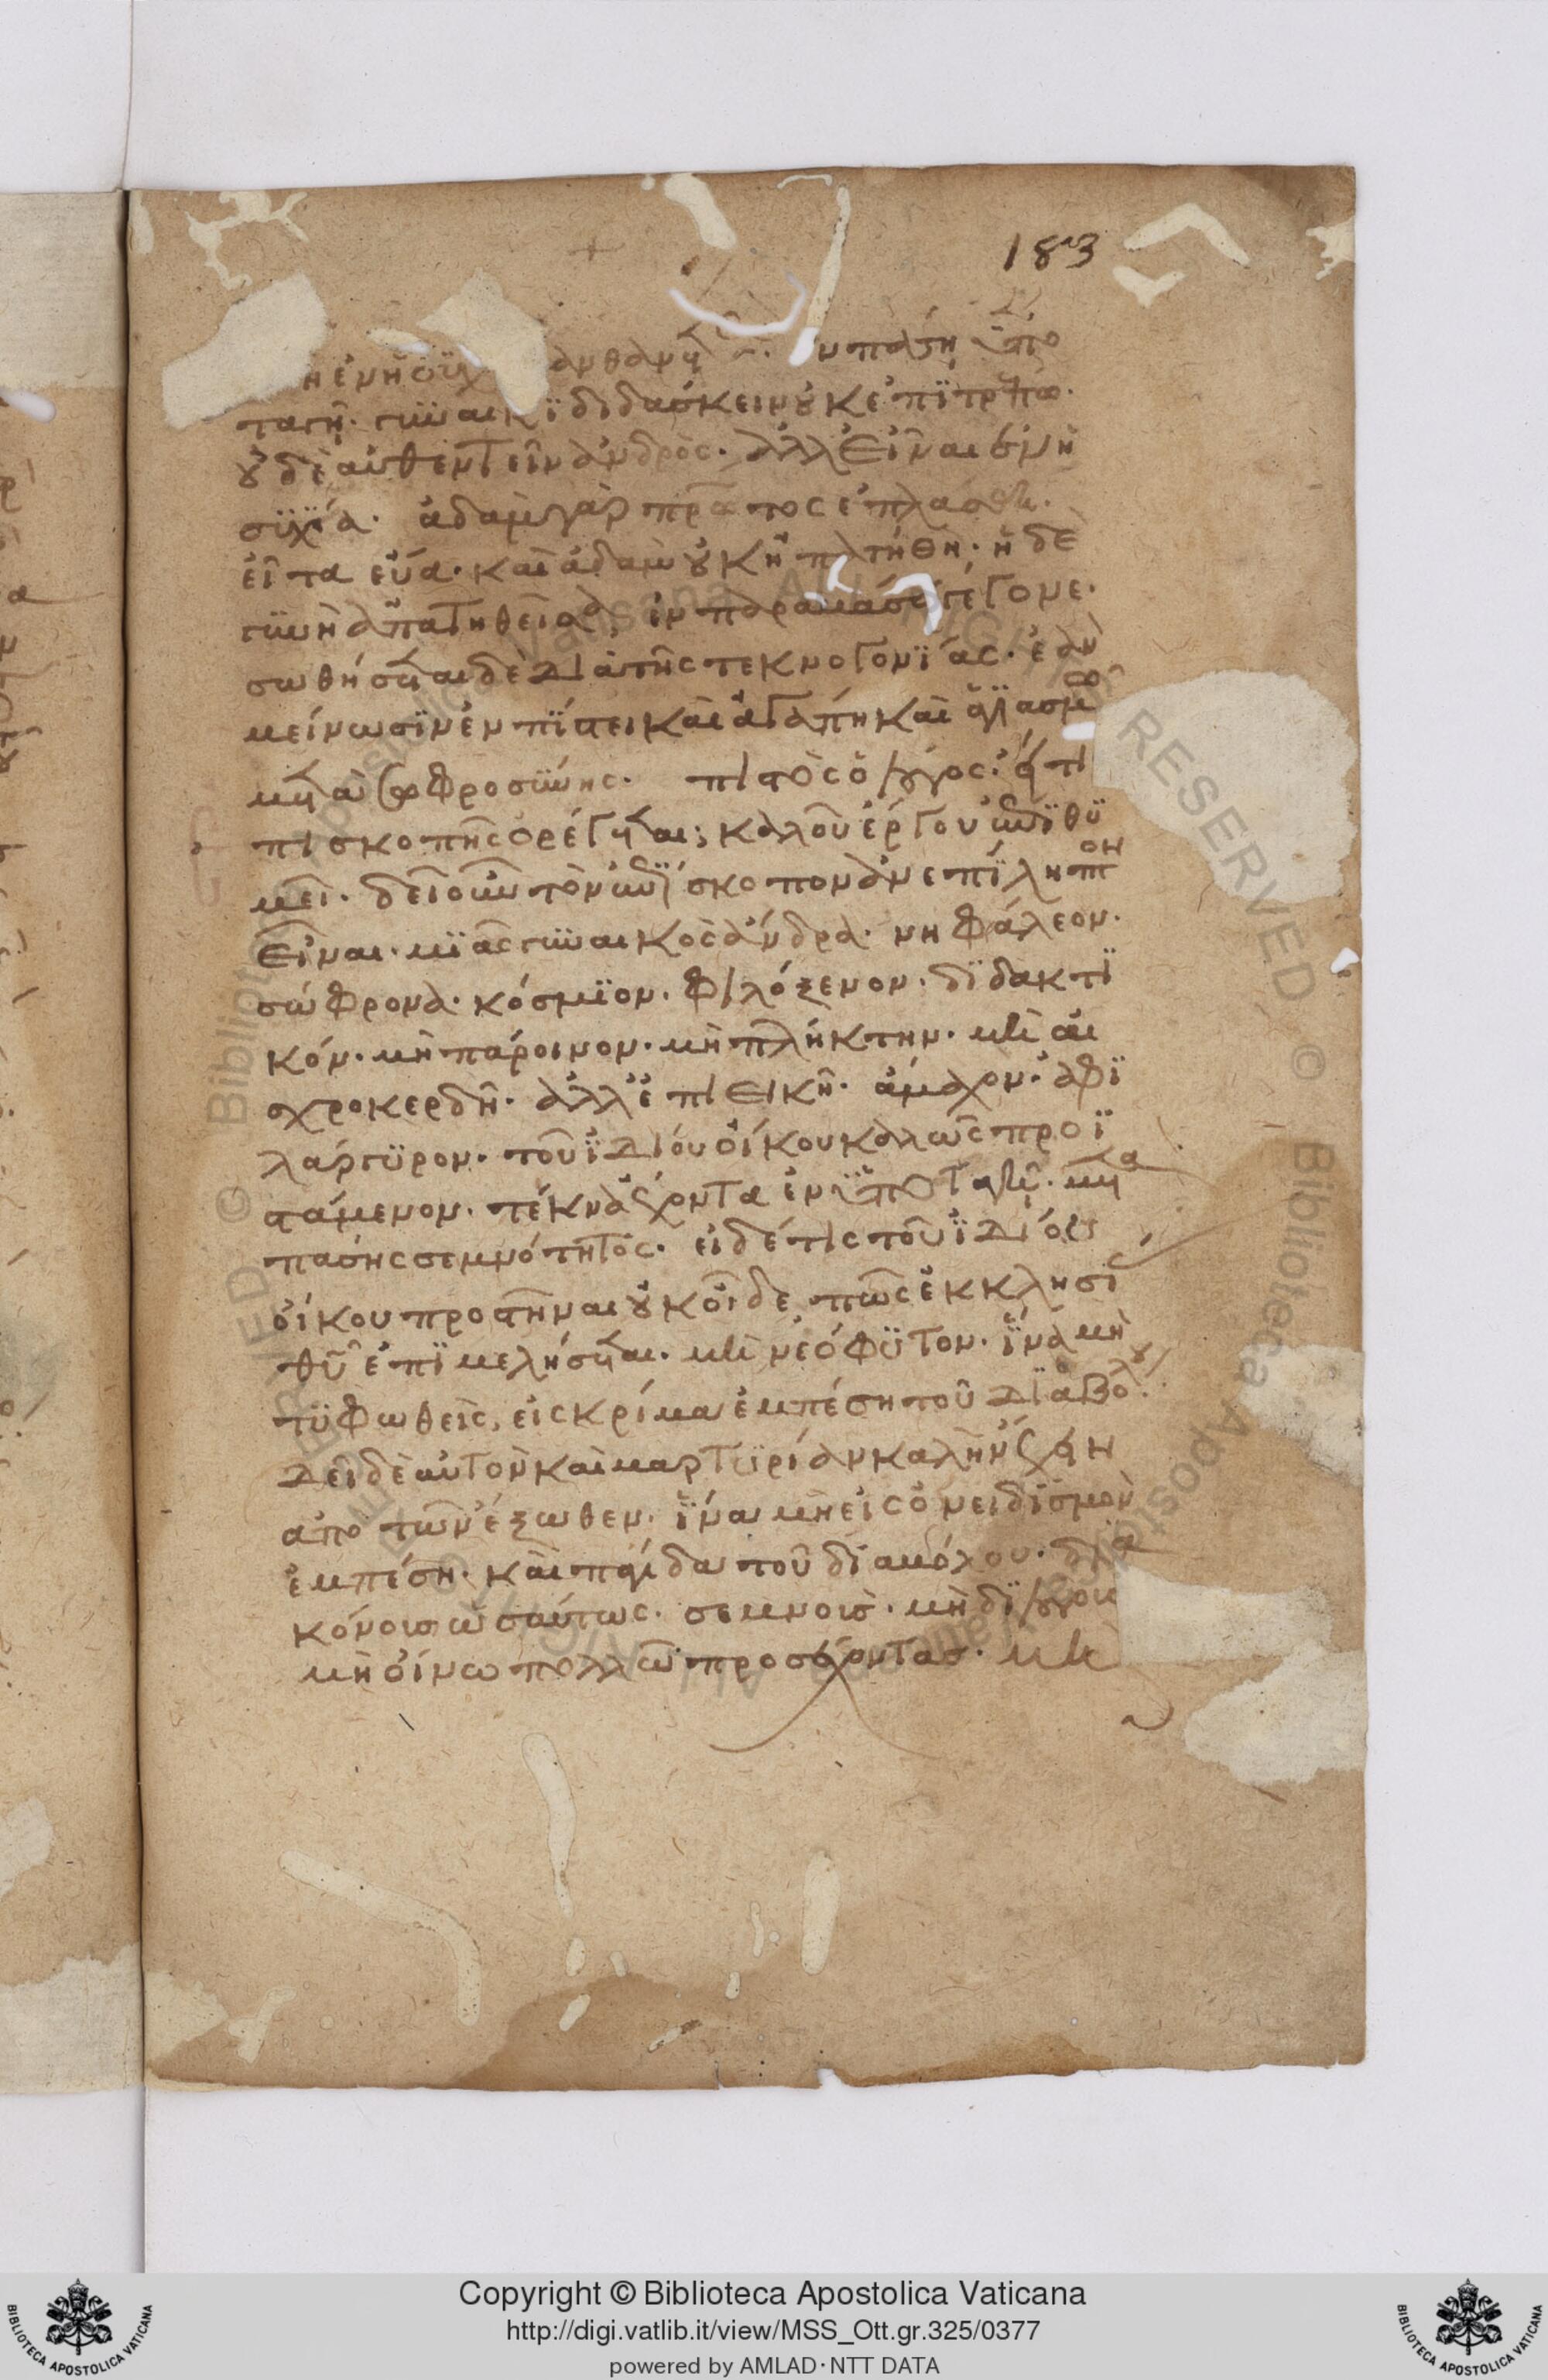 183
η ἐν ἡσυχ ανθανέτ ν πάση ὑπο
ταγῆ· γυναικῒ διδάσκειν οὐκ ἐπϊτρέπω·
οὐδὲ αὐθεντεῖν ἀνδρὸς· ἀλλ εἶναι ἐν ἡ
συχΐα· ἀδὰμ γὰρ πρῶτος ἐπλάσθη·
εἶτα εὔα· καὶ ἀδὰμ οὐκ ἠπατήθη· ἡ δὲ
γυνὴ ἀπατηθεῖσα, ἐν παραβάσει γέγονε·
σωθήσεται δὲ διὰ τῆς τεκνογονΐας· ἐὰν
μείνωσϊν ἐν πΐστει καὶ ἀγάπη καὶ ἁγϊασμῶ
μετὰ σωφροσύνης· πιστὸς ὁ λόγος· εἴ τι
πισκοπῆς ὀρέγεται; καλοῦ ἔργου ἐπϊθυ
μεῖ· δεῖ οὖν τὸν ἐπΐσκοπον ἀνεπΐληπτον
εἶναι· μϊᾶς γυναικὸς ἄνδρα· νηφάλεον·
σώφρονα· κόσμϊον· φιλόξενον· δϊδακτϊ
κόν· μὴ πάροινον· μὴ πλήκτην· μὴ αἰ
σχροκερδῆ· ἀλλ ἐπιεικῆ· ἄμαχον· ἀφϊ
λάργυρον· τοῦ ἰδίου οἴκου καλῶς προϊ
στάμενον· τέκνα ἔχοντα ἐν ὑποταγῆ· μετὰ
πάσης σεμνότητος· εἰ δέ τις τοῦ ἰδίου
οἴκου προστῆναι οὐκ οἶδε, πῶς ἐκκλησί
θυ ἐπϊμελήσεται· μὴ νεόφϋτον· ἵνα μὴ
τϋφωθεὶς, εἰς κρίμα ἐμπέση τοῦ διαβόλου·
δεῖ δὲ αὐτὸν καὶ μαρτυρίαν καλὴν ἔχειν
ἀπὸ τῶν ἔξωθεν· ἵνα μὴ εἰς ὀνειδϊσμὸν
ἐμπέση· καὶ παγίδα τοῦ διαβόλου· δϊα
κόνοισ ὡσαύτως· σεμνοισ· μὴ δϊλόγουσ
μὴ οἴνω πολλῶ προσέχοντασ· μὴ
Copyright © Biblioteca Apostolica Vaticana
http://digi.vatlib.it/view/MSS_Ott.gr.325/0377
powered by AMLAD·NTT DATA